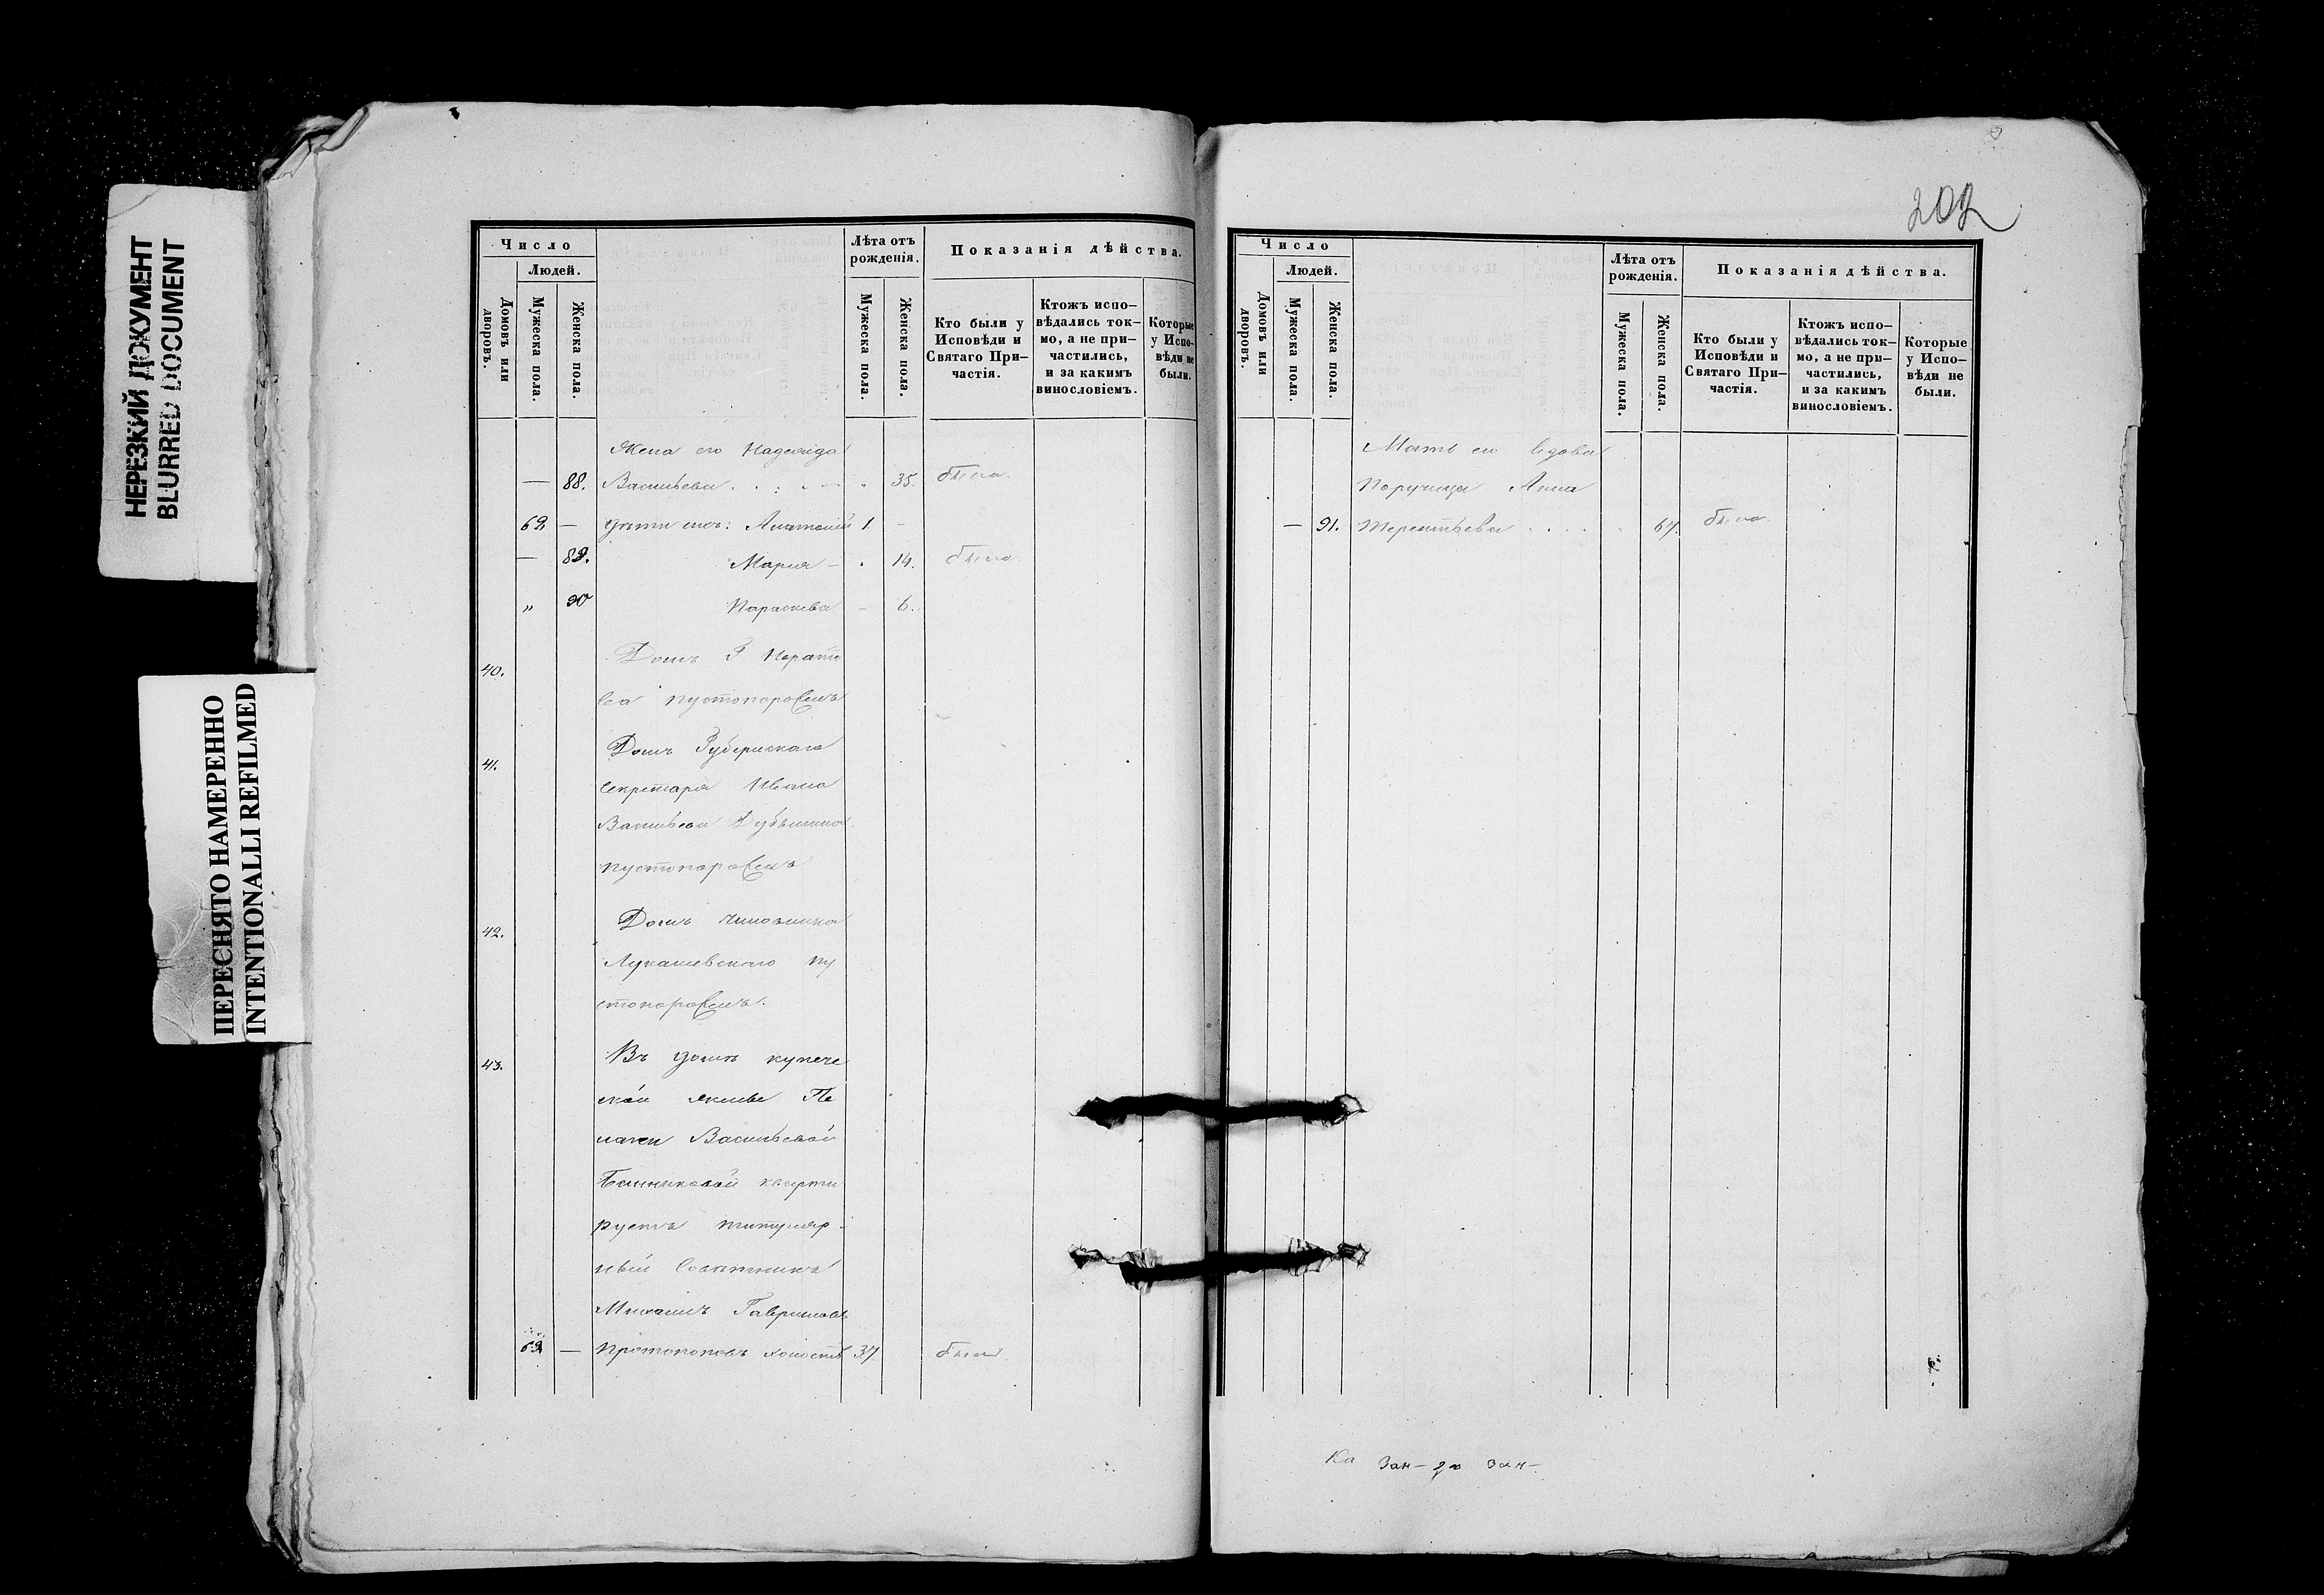 НЕРЕЗКИЙ ДОКУМЕНТ
BLURRED DOCUMENT
ПЕРЕСНЯТО НАМЕРЕННО
INTENTIONALLI REFILMED
Число
Людей.
Домовъ или дворовъ.
Мужеска пола.
Женска пола.
Лѣта отъ рожденія.
Мужеска пола.
Женска пола.
Показанія дѣйства.
Кто были у Исповѣди и Святаго При-частія.
Ктожъ испо-вѣдались ток-мо, а не при-частились, и за какимъ винословіемъ.
Которые у Испо-вѣди не были.
Жена его Надежда
— 88. Васильева . . : . — . 35. была
62 — дѣти ихъ: Анатолій 1. -
— 89. Марія — . 14. была
„ 90 Параскева — 6.
40. Домъ Г Нерати
ва пустопорожній
41. Домъ Губернскаго
Секретаря Ивана
Васильева
пустопорожній
42. Домъ чиновника
Лукашевскаго пу
стопорожній.
43. Въ домѣ купече
ской женѣ Пе
лагеи Васильевой
кварти
руетъ титуляр-
ный Совѣтникъ
Михаилъ Гавриловъ
63 — Протопоповъ холостъ 37 былъ
202
Число
Людей.
Домовъ или дворовъ.
Мужеска пола.
Женска пола.
Лѣта отъ рожденія.
Мужеска пола.
Женска пола.
Показанія дѣйства.
Кто были у Исповѣди и Святаго При-частія.
Ктожъ испо-вѣдались ток-мо, а не при-частились, и за какимъ винословіемъ.
Которые у Испо-вѣди не были.
Мать его вдова
Поручица Анна
— 91. Терентьева . . . . . 67. была